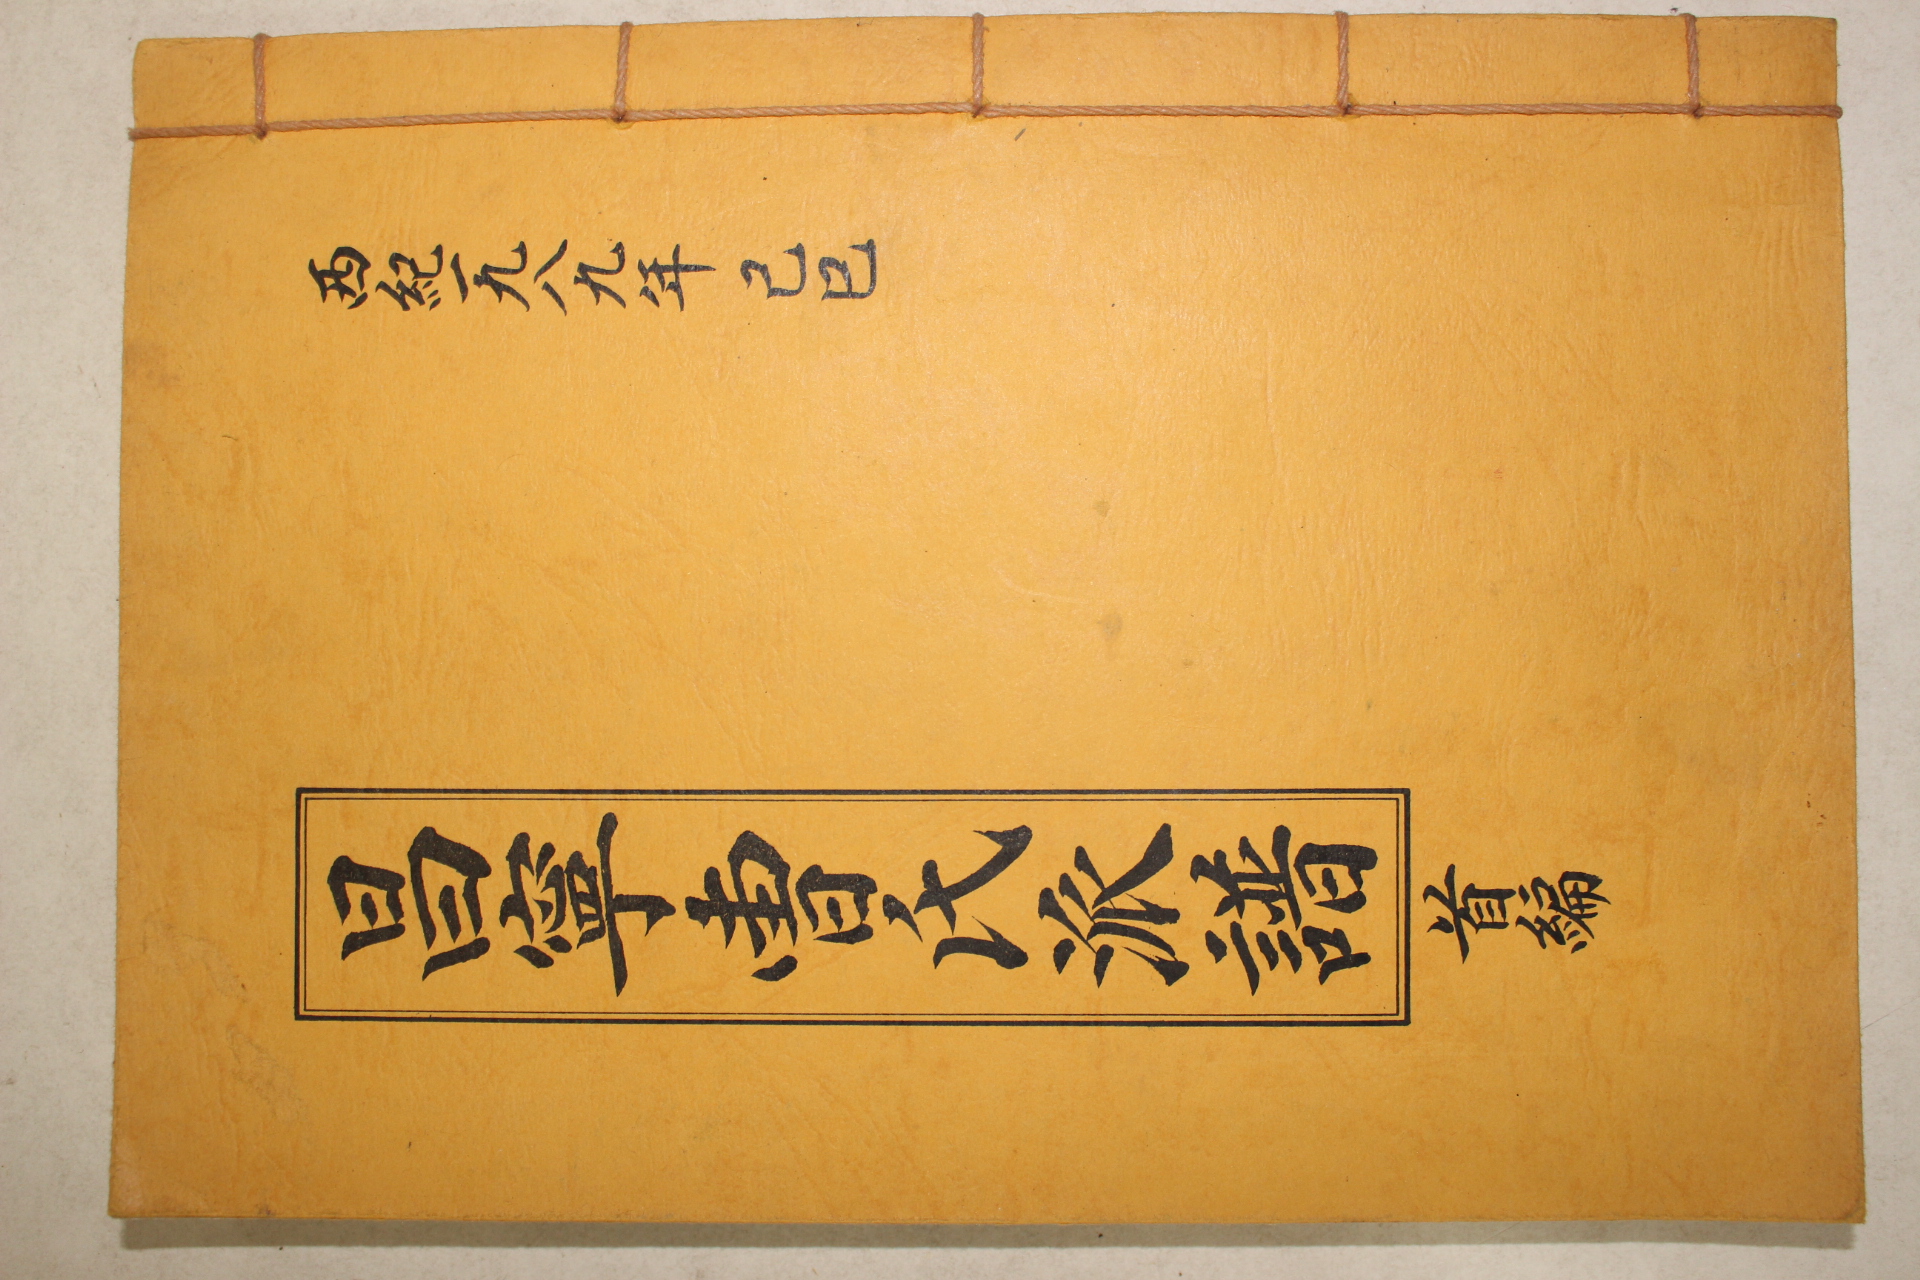 西紀一九八九年 己巳
昌寧曺氏派譜 首編